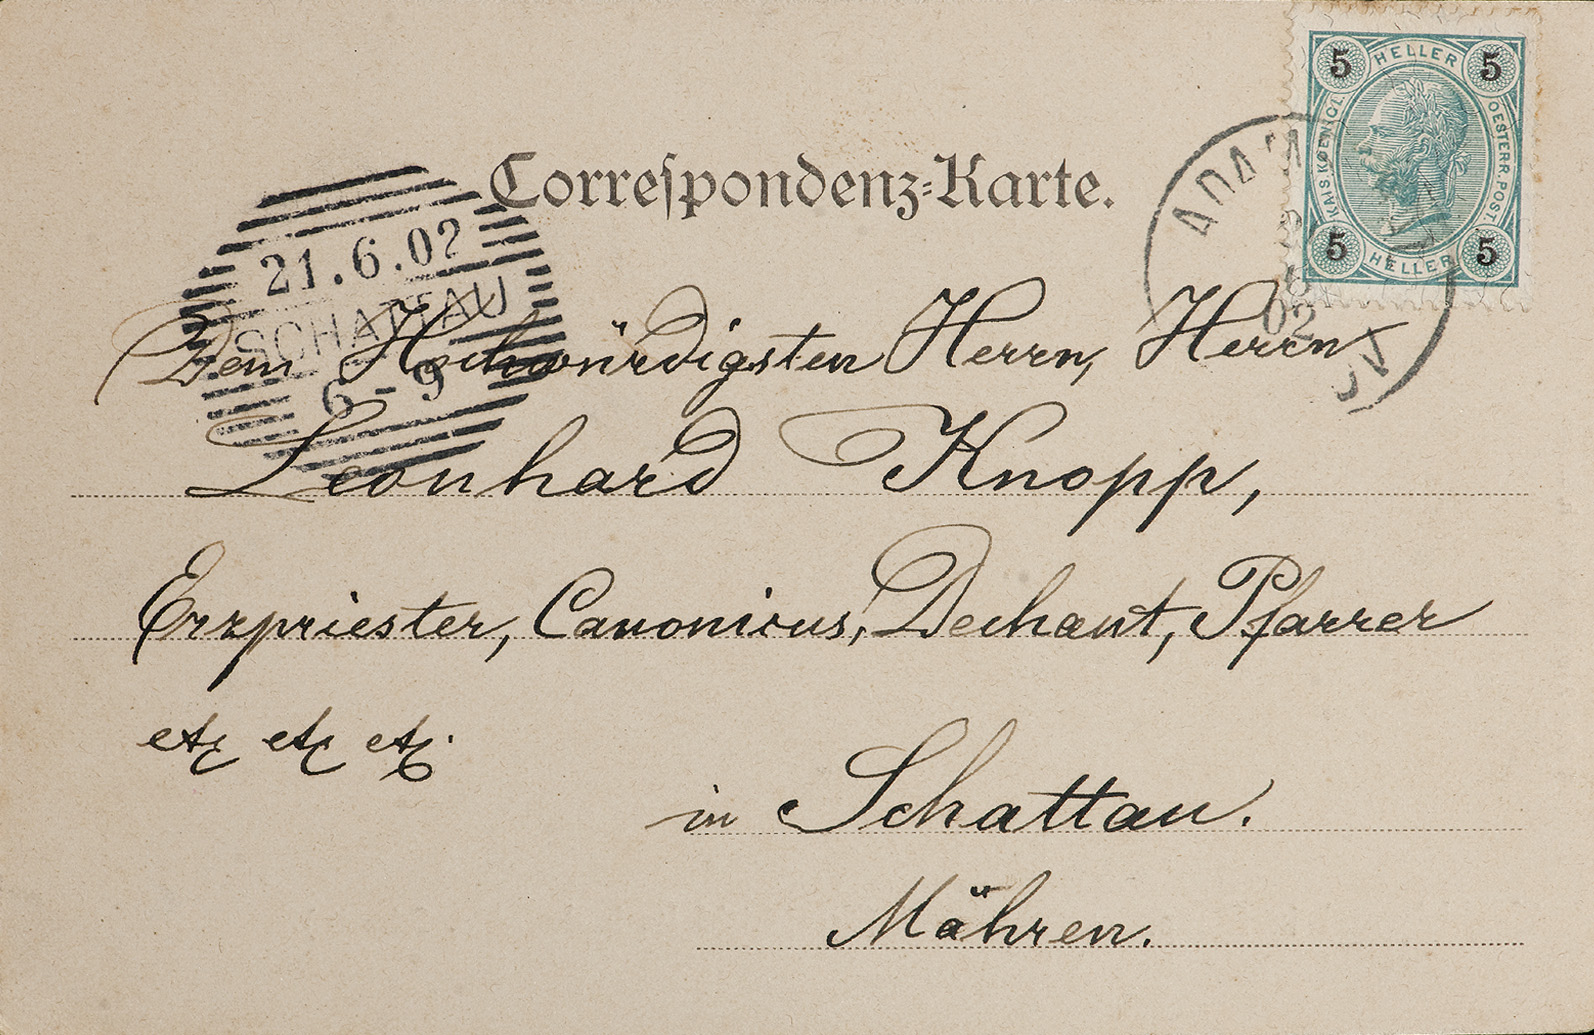 5 HELLER 5
KAIS. KOENIGL. OESTERR. POST.
5 HELLER 5
Correspondenz-Karte.
21.6.02
SCHATTAU
6-9
ADAM
02
Dem Hochwürdigsten Herrn, Herrn
Leonhard Knopp,
Erzpriester, Canonicus, Dechant, Pfarrer
etz etz etz.
in Schattau.
Mähren.